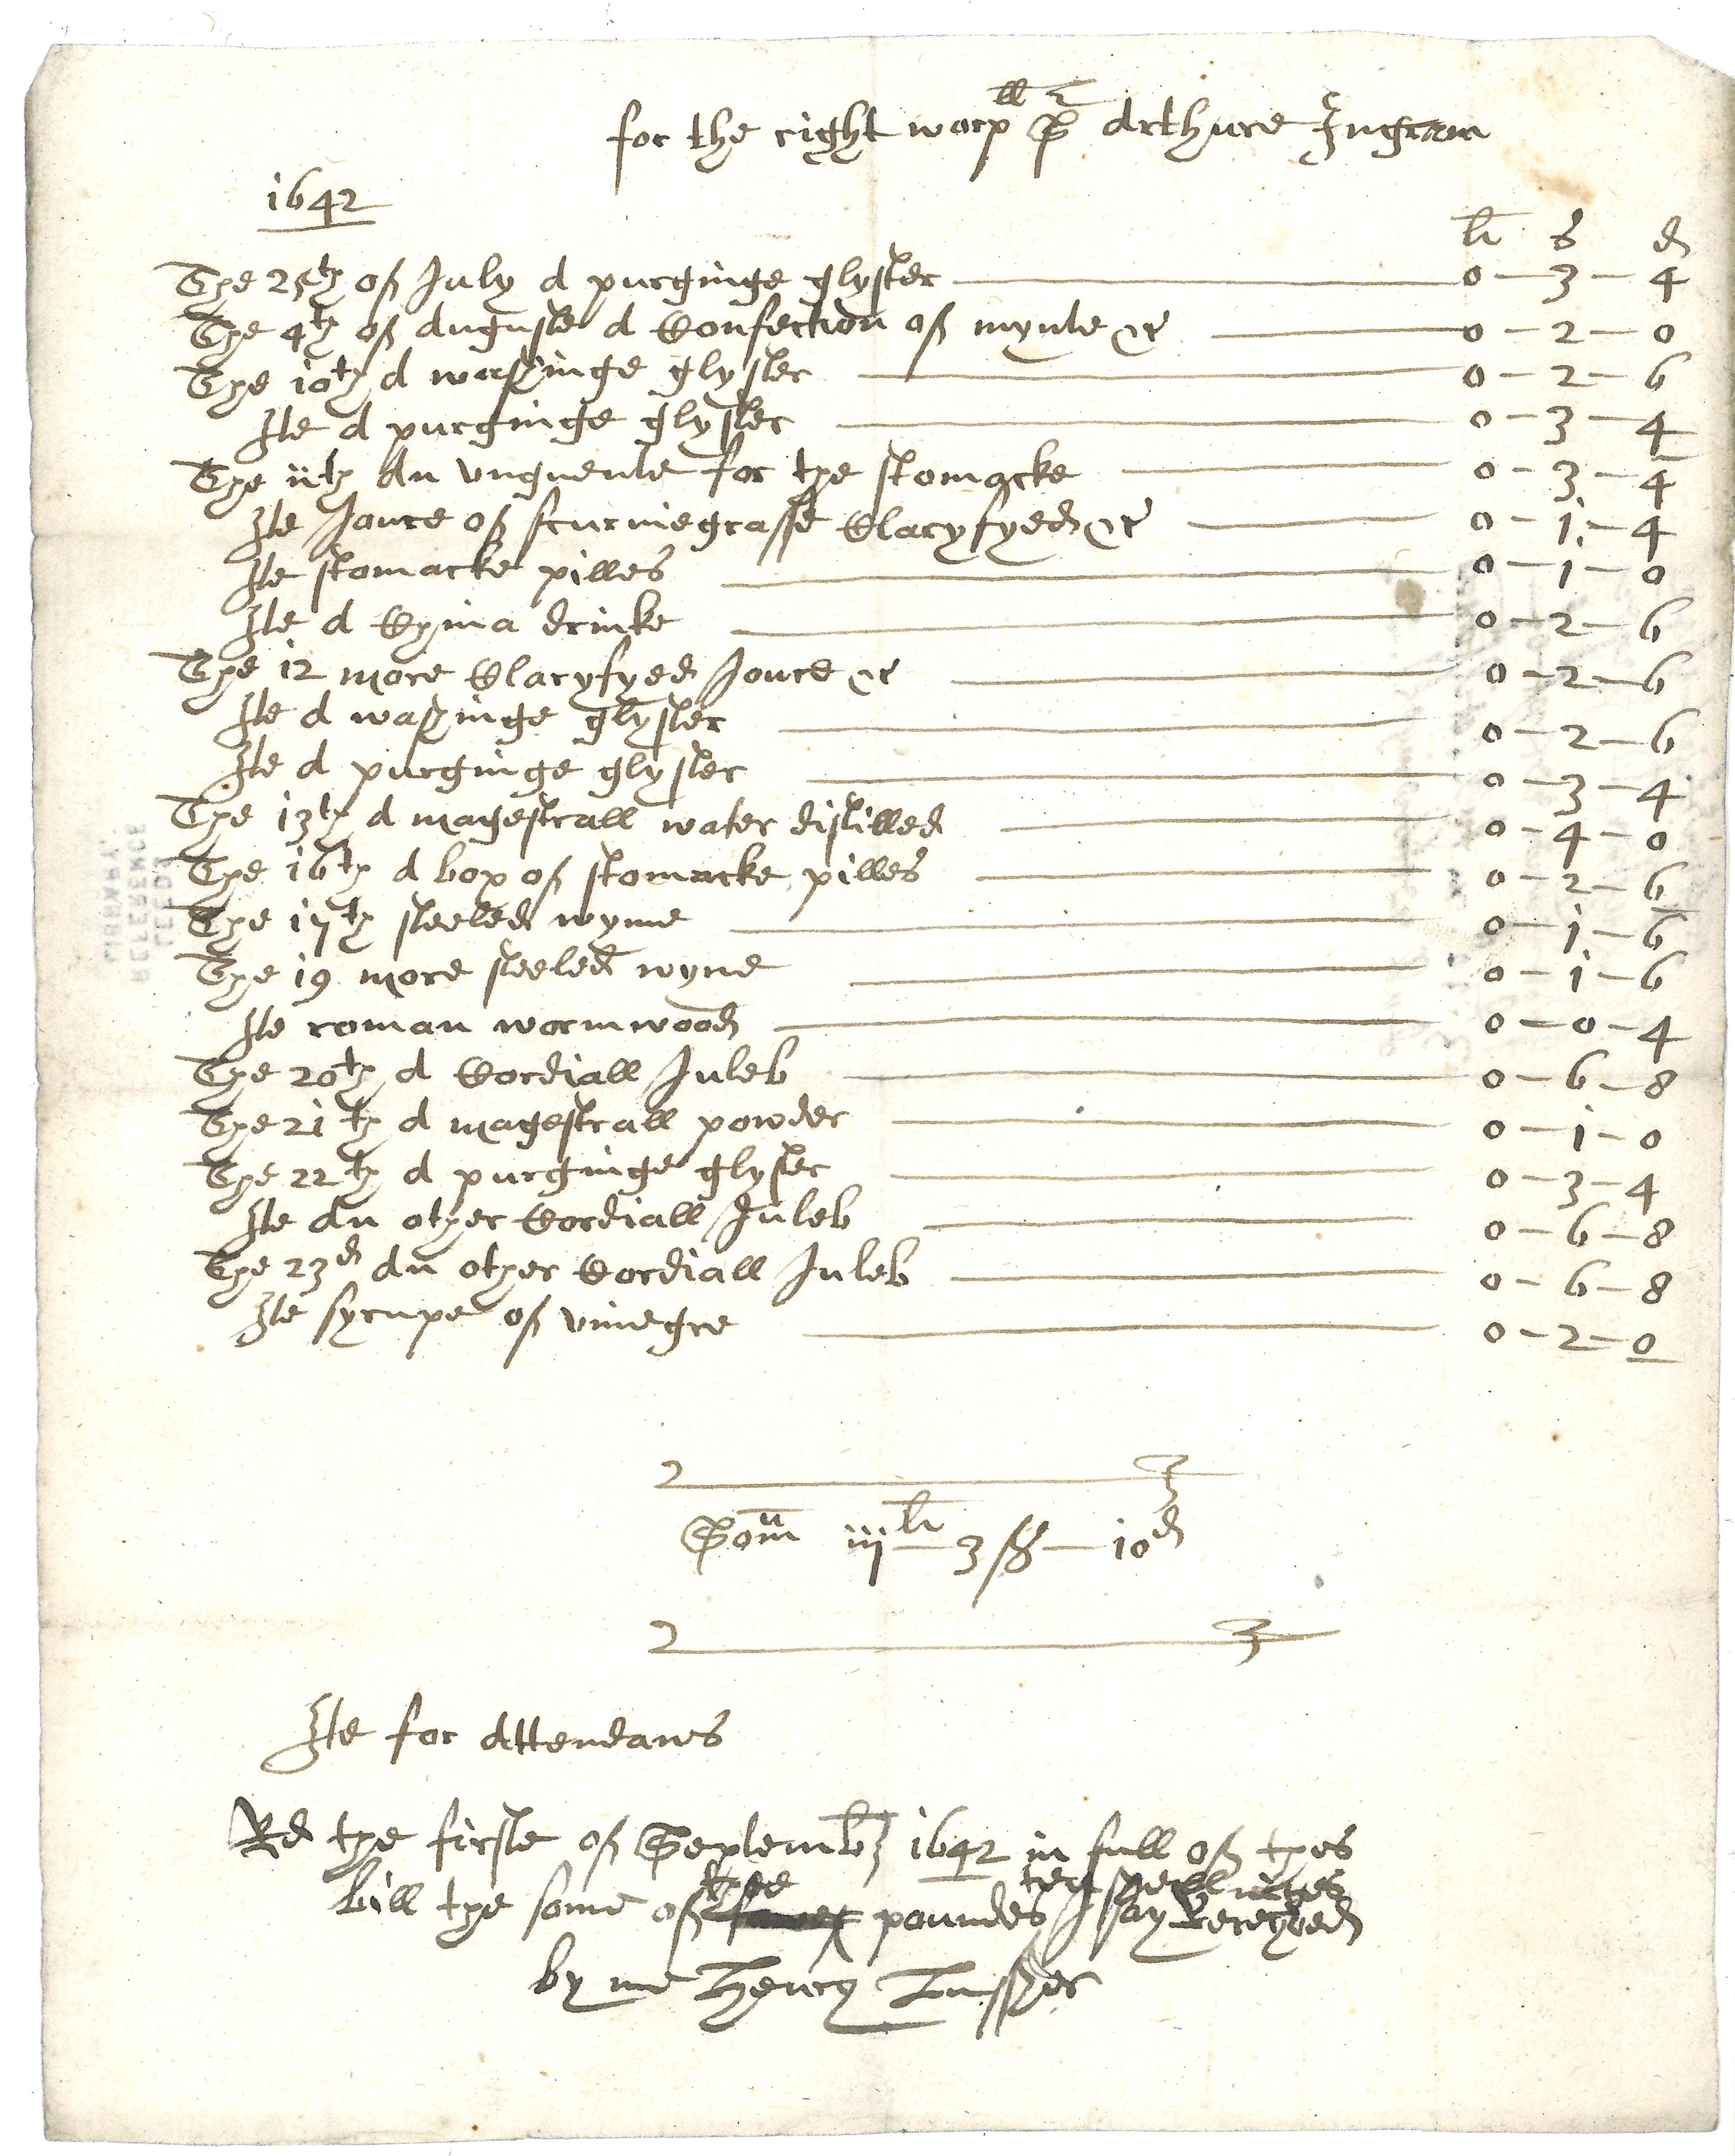 for the right worp^ll S^r Arthure Ingram
1642
li s d
The 25th of July A purginge glyster 0 – 3 – 4
The 4th of Auguste A Confection of mynte &c 0 – 2 – 0
The 10th A washinge glyster 0 – 2 – 6
Ite A purginge glyster 0 – 3 – 4
The 11th An unguente for the stomacke 0 – 3 – 4
Ite Jouce of scurviegrasse Claryfyed &c 0 – 1 – 4
Ite stomacke pilles 0 – 1 – 0
Ite A Chyna drinke 0 – 2 – 6
The 12 more Claryfyed Jouce &c 0 – 2 – 6
Ite A washinge glyster 0 – 2 – 6
Ite A purginge glyster 0 – 3 – 4
The 13th A magestrall water distilled 0 – 4 – 0
The 16th A box of stomacke pilles 0 – 2 – 6
The 17th steeled wyne 0 – 1 – 6
The 19 more steeled wyne 0 – 1 – 6
Ite roman wormwood 0 – 0 – 4
The 20th A Cordiall Juleb 0 – 6 – 8
The 21th A magestrall powder 0 – 1 – 0
The 22th A purginge glyster 0 – 3 – 4
Ite An other Cordiall Juleb 0 – 6 – 8
The 23d An other Cordiall Juleb 0 – 6 – 8
Ite syrupe of vinegre 0 – 2 – 0
Som iij^li – 3ss – 10^d
Ite for Attendans
Rd the firste of Septemb 1642 in full of thes
bill the some of thre poundes ten shellinges I say Receyved
by me Henry Lussher
LEEDS
REFERENCE
LIBRARY.